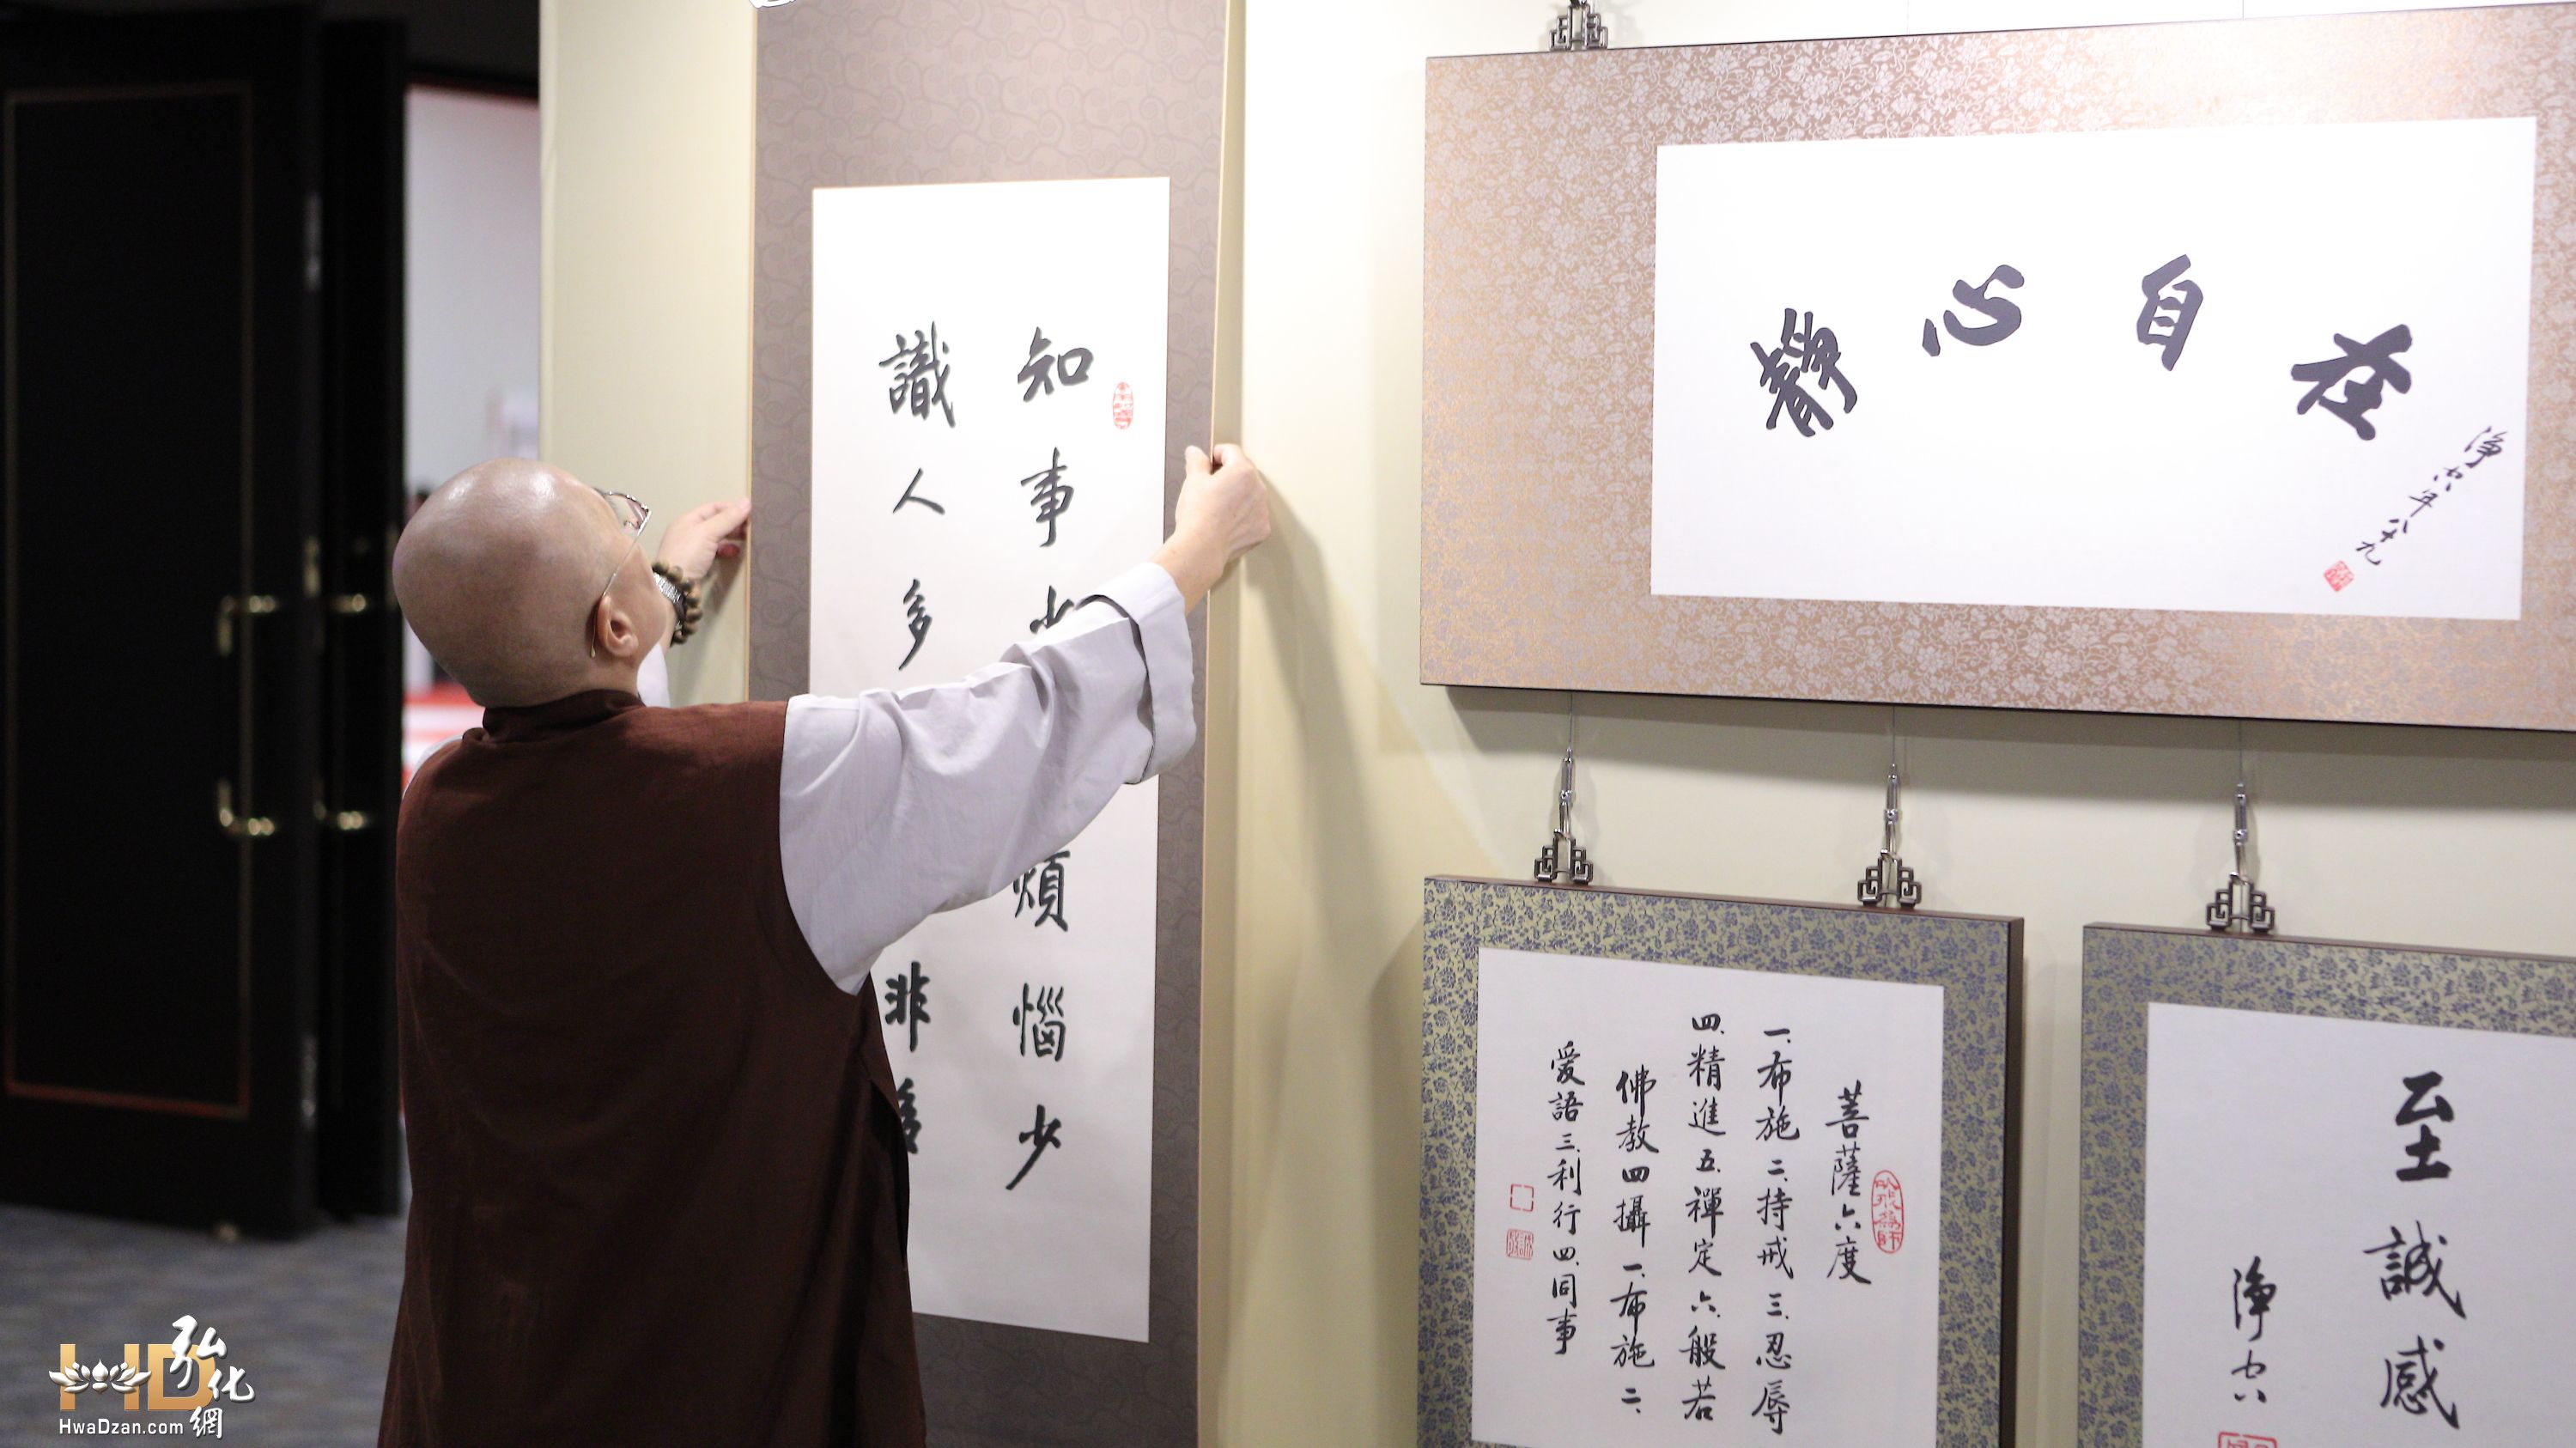 知事少 煩惱少
識人多 非多
靜心自在
淨空年八十九
菩薩六度
一、布施二、持戒三、忍辱
四、精進五、禪定六、般若
佛教四攝一、布施二、
愛語三、利行四、同事
至誠感
淨空
HD弘化網
HwaDzan.com